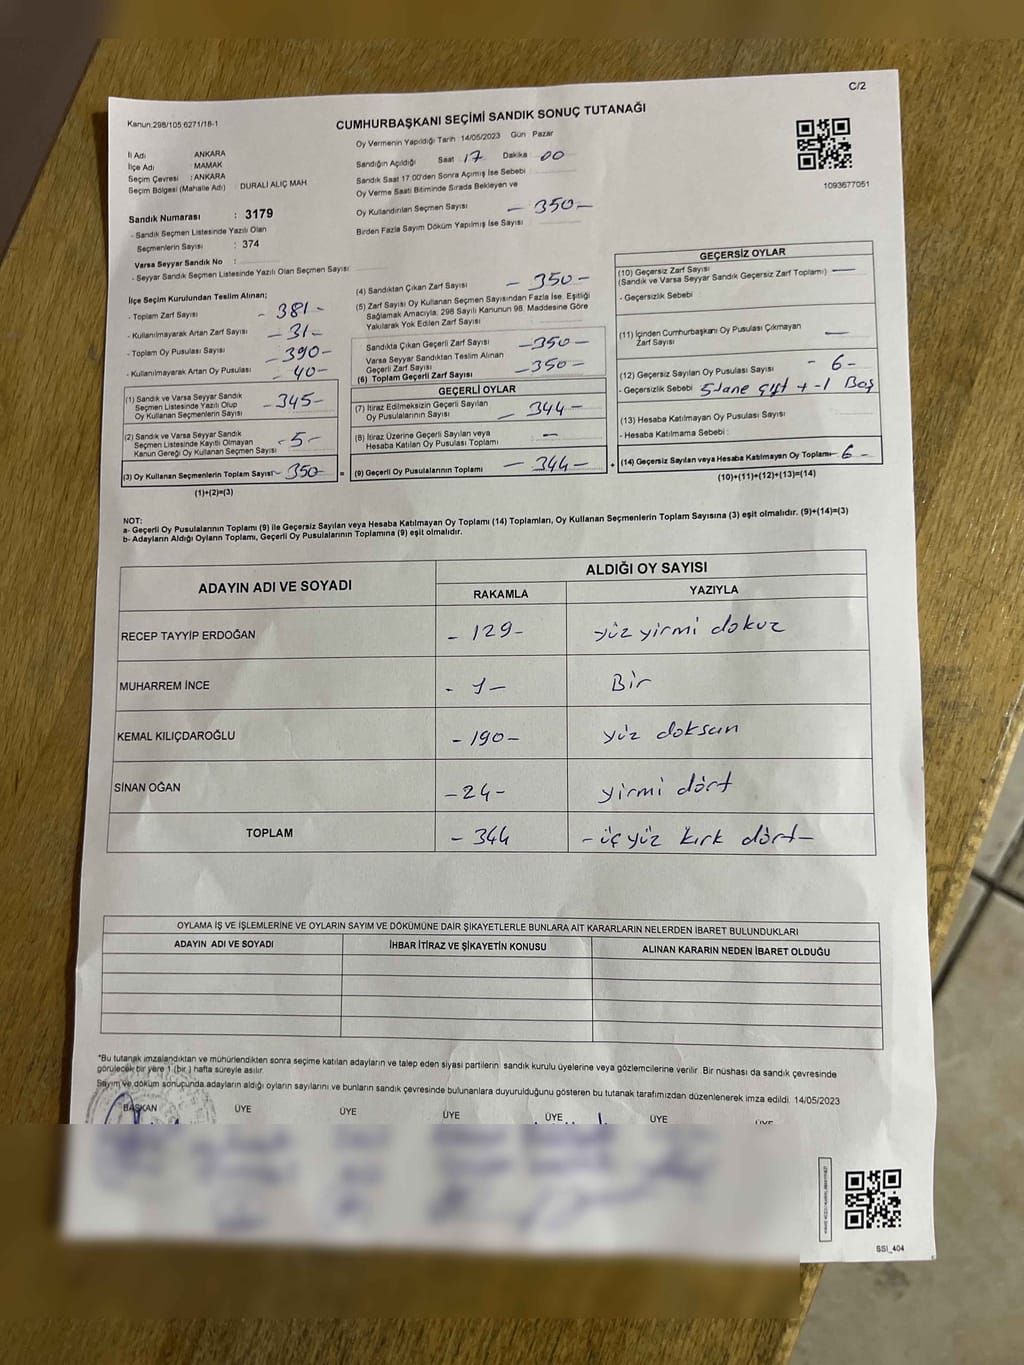 C/2
Kanun:298/105.6271/18-1
CUMHURBAŞKANI SEÇİMİ SANDIK SONUÇ TUTANAĞI
Oy Vermenin Yapıldığı Tarih :14/05/2023 Gün : Pazar
İl Adı : ANKARA
İlçe Adı : MAMAK
Seçim Çevresi : ANKARA
Seçim Bölgesi (Mahalle Adı) : DURALİ ALIÇ MAH
Sandığın Açıldığı Saat 17 Dakika 00
Sandık Saat 17.00'den Sonra Açımış İse Sebebi :
Oy Verme Saati Bitiminde Sırada Bekleyen ve
Oy Kullandırılan Seçmen Sayısı - 350 -
Birden Fazla Sayım Döküm Yapılmış İse Sayısı :
1093677051
Sandık Numarası : 3179
- Sandık Seçmen Listesinde Yazılı Olan
Seçmenlerin Sayısı : 374
Varsa Seyyar Sandık No :
- Seyyar Sandık Seçmen Listesinde Yazılı Olan Seçmen Sayısı:
İlçe Seçim Kurulundan Teslim Alınan;
- Toplam Zarf Sayısı - 381 -
- Kullanılmayarak Artan Zarf Sayısı - 31 -
- Toplam Oy Pusulası Sayısı - 390 -
- Kullanılmayarak Artan Oy Pusulası - 40 -
(1) Sandık ve Varsa Seyyar Sandık
Seçmen Listesinde Yazılı Olup
Oy Kullanan Seçmenlerin Sayısı - 345 -
(2) Sandık ve Varsa Seyyar Sandık
Seçmen Listesinde Kayıtlı Olmayan
Kanun Gereği Oy Kullanan Seçmen Sayısı - 5 -
(3) Oy Kullanan Seçmenlerin Toplam Sayısı - 350 -
(1)+(2)=(3)
(4) Sandıktan Çıkan Zarf Sayısı - 350 -
(5) Zarf Sayısı Oy Kullanan Seçmen Sayısından Fazla İse, Eşitliği
Sağlamak Amacıyla, 298 Sayılı Kanunun 98. Maddesine Göre
Yakılarak Yok Edilen Zarf Sayısı :
Sandıkta Çıkan Geçerli Zarf Sayısı - 350 -
Varsa Seyyar Sandıktan Teslim Alınan
Geçerli Zarf Sayısı
(6) Toplam Geçerli Zarf Sayısı - 350 -
GEÇERLİ OYLAR
(7) İtiraz Edilmeksizin Geçerli Sayılan
Oy Pusulalarının Sayısı - 344 -
(8) İtiraz Üzerine Geçerli Sayılan veya
Hesaba Katılan Oy Pusulası Toplamı -
= (9) Geçerli Oy Pusulalarının Toplamı - 344 -
GEÇERSİZ OYLAR
(10) Geçersiz Zarf Sayısı
(Sandık ve Varsa Seyyar Sandık Geçersiz Zarf Toplamı) -
- Geçersizlik Sebebi :
(11) İçinden Cumhurbaşkanı Oy Pusulası Çıkmayan
Zarf Sayısı -
(12) Geçersiz Sayılan Oy Pusulası Sayısı - 6 -
- Geçersizlik Sebebi 5 tane çift + -1 Boş
(13) Hesaba Katılmayan Oy Pusulası Sayısı
- Hesaba Katılmama Sebebi :
+ (14) Geçersiz Sayılan veya Hesaba Katılmayan Oy Toplamı - 6 -
(10)+(11)+(12)+(13)=(14)
NOT:
a- Geçerli Oy Pusulalarının Toplamı (9) ile Geçersiz Sayılan veya Hesaba Katılmayan Oy Toplamı (14) Toplamları, Oy Kullanan Seçmenlerin Toplam Sayısına (3) eşit olmalıdır. (9)+(14)=(3)
b- Adayların Aldığı Oyların Toplamı, Geçerli Oy Pusulalarının Toplamına (9) eşit olmalıdır.
ADAYIN ADI VE SOYADI
ALDIĞI OY SAYISI
RAKAMLA YAZIYLA
RECEP TAYYİP ERDOĞAN - 129 - yüz yirmi dokuz
MUHARREM İNCE - 1 - Bir
KEMAL KILIÇDAROĞLU - 190 - yüz doksan
SİNAN OĞAN - 24 - yirmi dört
TOPLAM - 344 - üç yüz kırk dört -
OYLAMA İŞ VE İŞLEMLERİNE VE OYLARIN SAYIM VE DÖKÜMÜNE DAİR ŞİKAYETLERLE BUNLARA AİT KARARLARIN NELERDEN İBARET BULUNDUKLARI
ADAYIN ADI VE SOYADI İHBAR İTİRAZ VE ŞİKAYETİN KONUSU ALINAN KARARIN NEDEN İBARET OLDUĞU
*Bu tutanak imzalandıktan ve mühürlendikten sonra seçime katılan adayların ve talep eden siyasi partilerin sandık kurulu üyelerine veya gözlemcilerine verilir. Bir nüshası da sandık çevresinde
görülecek bir yere 1 (bir ) hafta süreyle asılır.
Sayım ve döküm sonucunda adayların aldığı oyların sayılarını ve bunların sandık çevresinde bulunanlara duyurulduğunu gösteren bu tutanak tarafımızdan düzenlenerek imza edildi. 14/05/2023
BAŞKAN ÜYE ÜYE ÜYE ÜYE ÜYE ÜYE
SSI_404